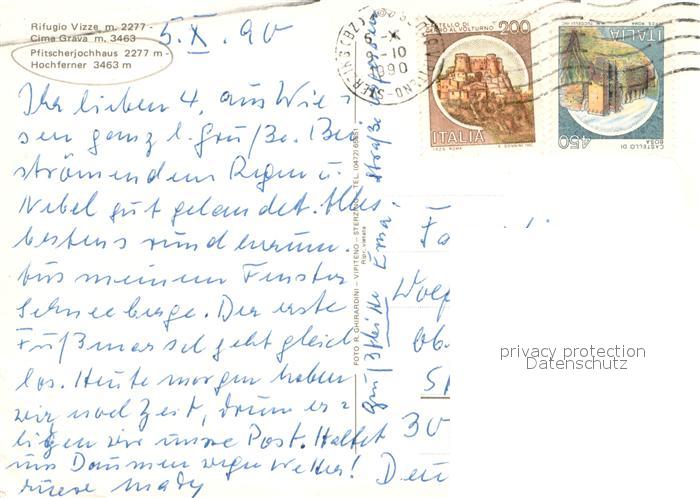 Rifugio Vizze m. 2277 -
Cima Grava m. 3463
Pfitscherjochhaus 2277 m -
Hochferner 3463 m
5.X.90
Ihr lieben 4, aus Wie-
sen ganz l. Grüße. Bei
strömendem Regen u.
Nebel gut gelandet. Alles
bestens rundherum.
Aus meinem Fenster
Schneeberge. Der erste
Fußmarsch geht gleich
los. Heute morgen haben
wir noch Zeit, drum er-
ledigen wir unsere Post. Haltet
uns Daumen wegen Wetter!
Eure Mady
Grüßt bitte Erna
Straße
FOTO R. GHIRARDINI - VIPITENO - STERZING - TEL. (0472)
Ripr. vietata
6-X
-10
1990
CASTELLO DI
CERRO AL VOLTURNO
200
ITALIA
ITALIA
450
CASTELLO DI
BOSA
Fa
Wolf
Ob.
30
Deu
privacy protection
Datenschutz